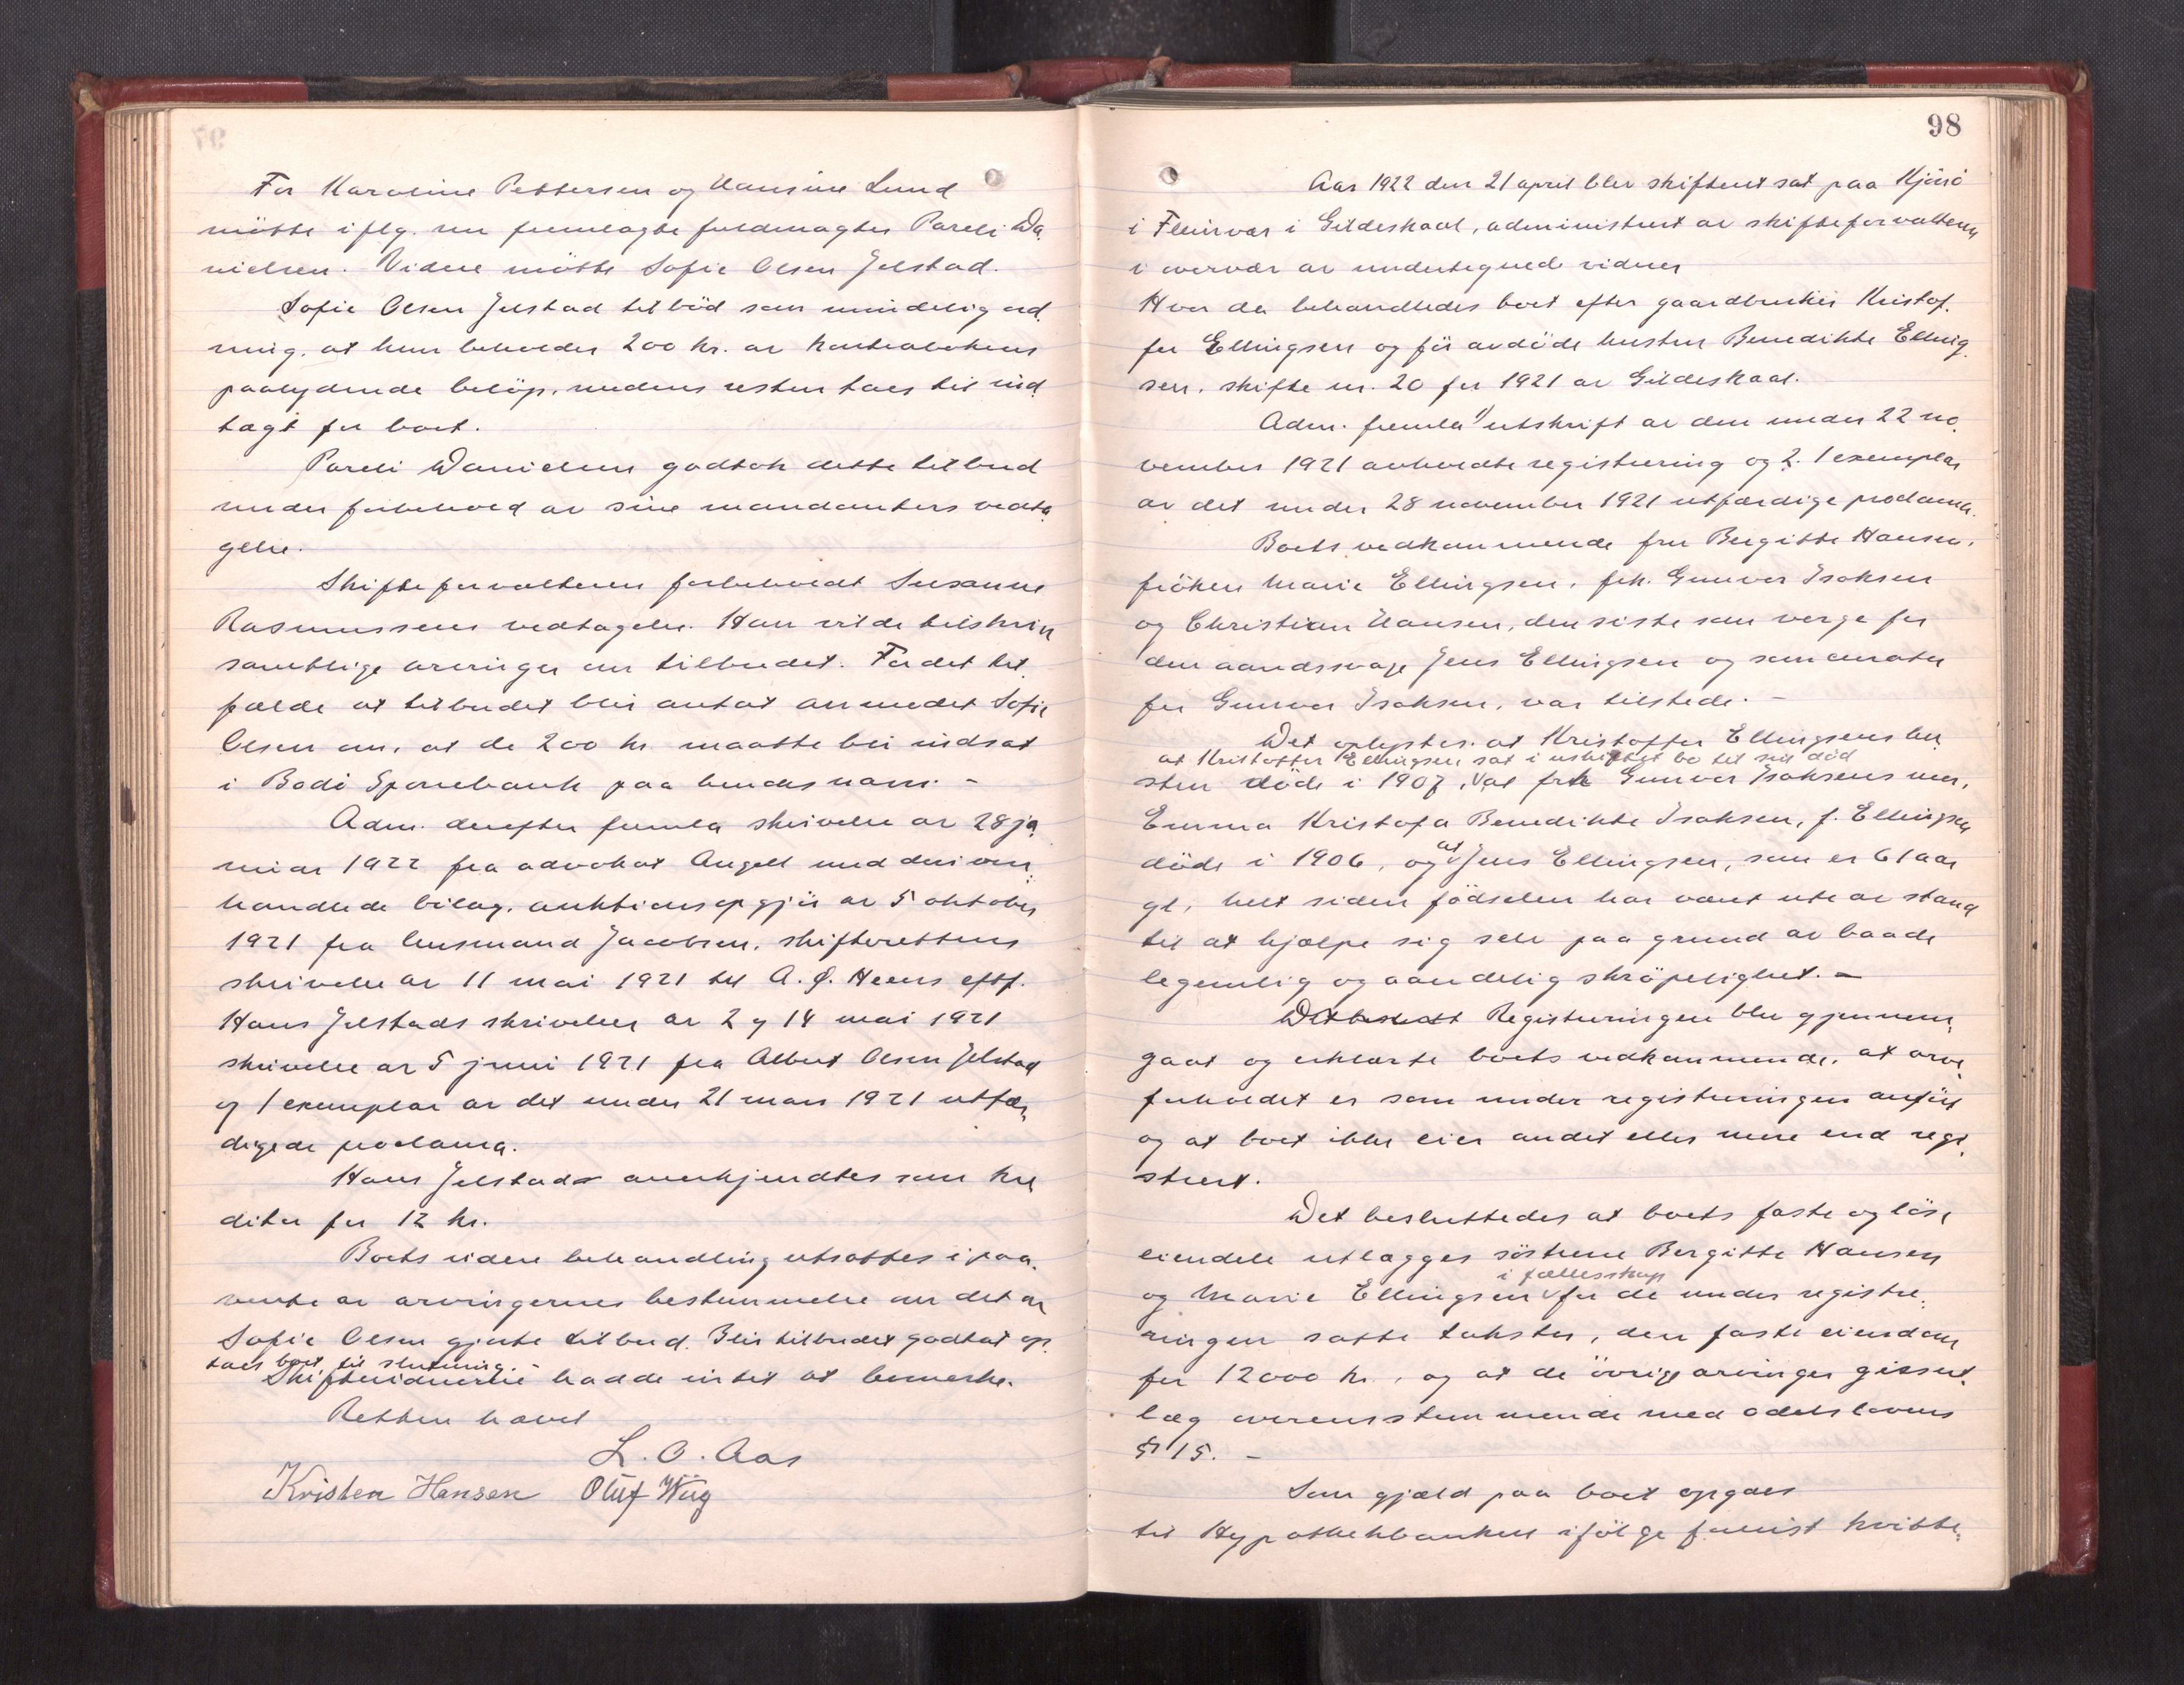 For Karoline Pettersen og Hansine Lund
mötte iflg. nu fremlagte fuldmagter Pareli Da,
nielsen. Videre mötte Sofie Olsen Jelstad.
Sofie Olsen Jelstad tilböd som mindelig ord,
ning, at hun beholder 200 kr. av kontrabokens
paalydende belöp, medens resten taes til ind
tægt for boet.
Pareli Danielsen godtok dette tilbud
under forbehold av sine mandanters vedta,
gelse.
Skifteforvalteren forbeholdt Susanne
Rasmussens vedtagelse. Han vilde tilskrive
samtlige arvinger om tilbudet. For det til,
fælde at tilbudet blir antat anmodet Sofie
Olsen om, at de 200 kr. maatte bli indsat
i Bodö Sparebank paa hendes navn. -
Adm. derefter fremla skrivelse av 28 ja,
nuar 1922 fra advokat Angell med deri om,
handlede bilag, auktionsopgjör av 5 oktober
1921 fra lensmand Jacobsen, skifterettens
skrivelse av 11 mai 1921 til A. Ø. Heens eftf.
Hans Jelstads skrivelser av 2 og 14 mai 1921
skrivelse av 5 juni 1921 fra Albert Olsen Jelstad
og 1 exemplar av det under 21 mars 1921 utfær,
digede proclama.
Hans Jelstad anerkjendtes som kre
ditor for 12 kr.
Boets videre behandling utsattes i paa,
vente av arvingernes bestemmelse om det av
Sofie Olsen gjorte tilbud. Blir tilbudet godtat op
taes boet til slutning. -
Skiftevidnerne hadde intet at bemerke.
Retten hævet
L. O. Aas
Kristen Hansen Oluf Wiig
98
Aar 1922 den 21 april blev skifteret sat paa Kjörsö
i Fleinvær i Gildeskaal, administrert av skifteforvalteren
i overvær av undertegnede vidner
Hvor da behandledes boet efter gaardbruker Kristof,
fer Ellingsen og för avdöde hustru Benedikte Elling,
sen, skifte nr. 20 for 1921 av Gildeskaal.
Adm. fremla 1) utskrift av den under 22 no,
vember 1921 avholdte registrering og 2. 1 exemplar
av det under 28 november 1921 utfærdige proclama.
Boets vedkommende fru Bergitte Hansen,
fröken Marie Ellingsen, frk. Gunvor Isaksen
og Christian Hansen, den siste som verge for
den aandssvage Jens Ellingsen og som curator
for Gunvor Isaksen, var tilstede. -
Det oplystes, at Kristoffer Ellingsens hu,
at Kristoffer Ellingsen sat i uskiftet bo til sin död
stru döde i 1907, at frk Gunvor Isaksens mor,
Emma Kristofa Benedikte Isaksen, f. Ellingsen
döde i 1906, og at Jens Ellingsen, som er 61 aar
gl, helt siden födselen har været ute av stand
til at hjælpe sig selv paa grund av baade
legemlig og aandelig skröpelighet. -
Registreringen blev gjennem,
gaat og erklærte boets vedkommende, at arve,
forholdet er som under registreringen anfört
og at boet ikke eier andet eller mere end regi,
strert.
Det besluttedes at boets faste og löse
eiendele utlægges söstrene Bergitte Hansen
i fællesskap
og Marie Ellingsen for de under registre,
ringen satte takster, den faste eiendom
for 12000 kr., og at de övrige arvinger gis sut,
læg overensstemmende med odelslovens
§ 15. -
Som gjæld paa boet opgaes
til Hypothekbanken ifölge forevist kvitte,